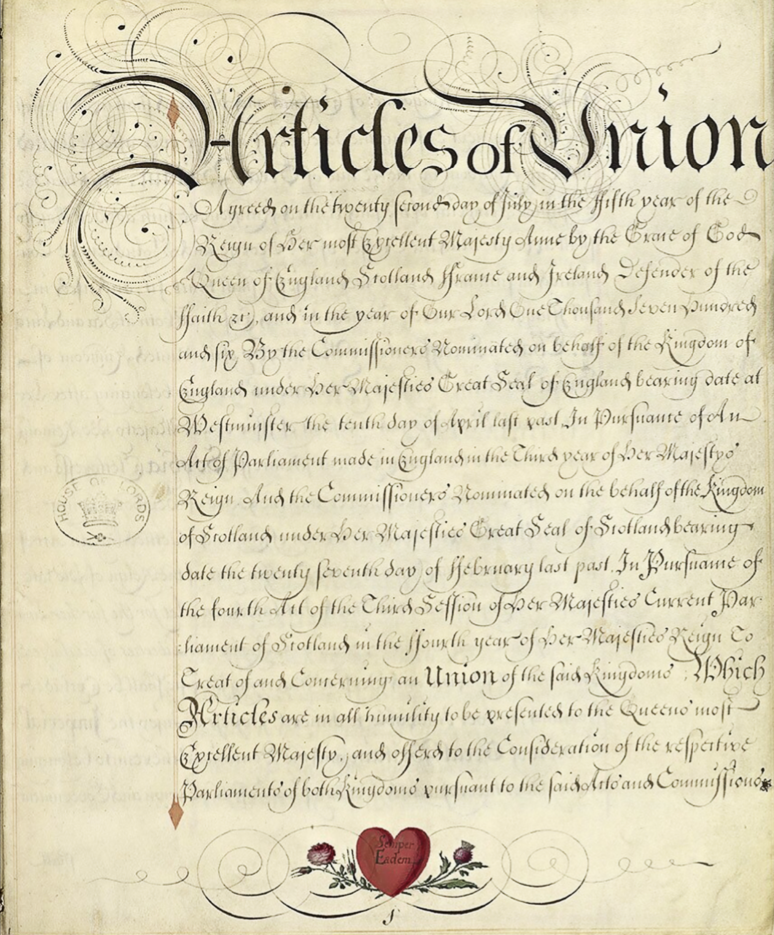 Articles of Union
Agreed on the twenty second day of July, in the ffifth year of the
Reign of Her most Excellent Majesty Anne by the Grace of God
Queen of England Scotland ffrance and Ireland Defender of the
ffaith &c, and in the year of Our Lord One Thousand Seven Hundred
and six. By the Commissioners Nominated on behalf of the Kingdom of
England under Her Majesties Great Seal of England bearing date at
Westminster the tenth day of April last past In Pursuance of An
Act of Parliament made in England in the Third year of Her Majestys
Reign. And the Commissioners Nominated on the behalf of the Kingdom
of Scotland under Her Majesties Great Seal of Scotland bearing
date the twenty seventh day of ffebruary last past. In Pursuance of
the fourth Act of the Third Session of Her Majesties Current Par-
liament of Scotland in the ffourth year of Her Majesties Reign To
Treat of and Concerning an Union of the said Kingdoms. Which
Articles are in all humility to be presented to the Queens most
Excellent Majesty, and offerd to the Consideration of the respective
Parliaments of both Kingdoms pursuant to the said Acts and Commissions
HOUSE OF LORDS
Semper
Eadem